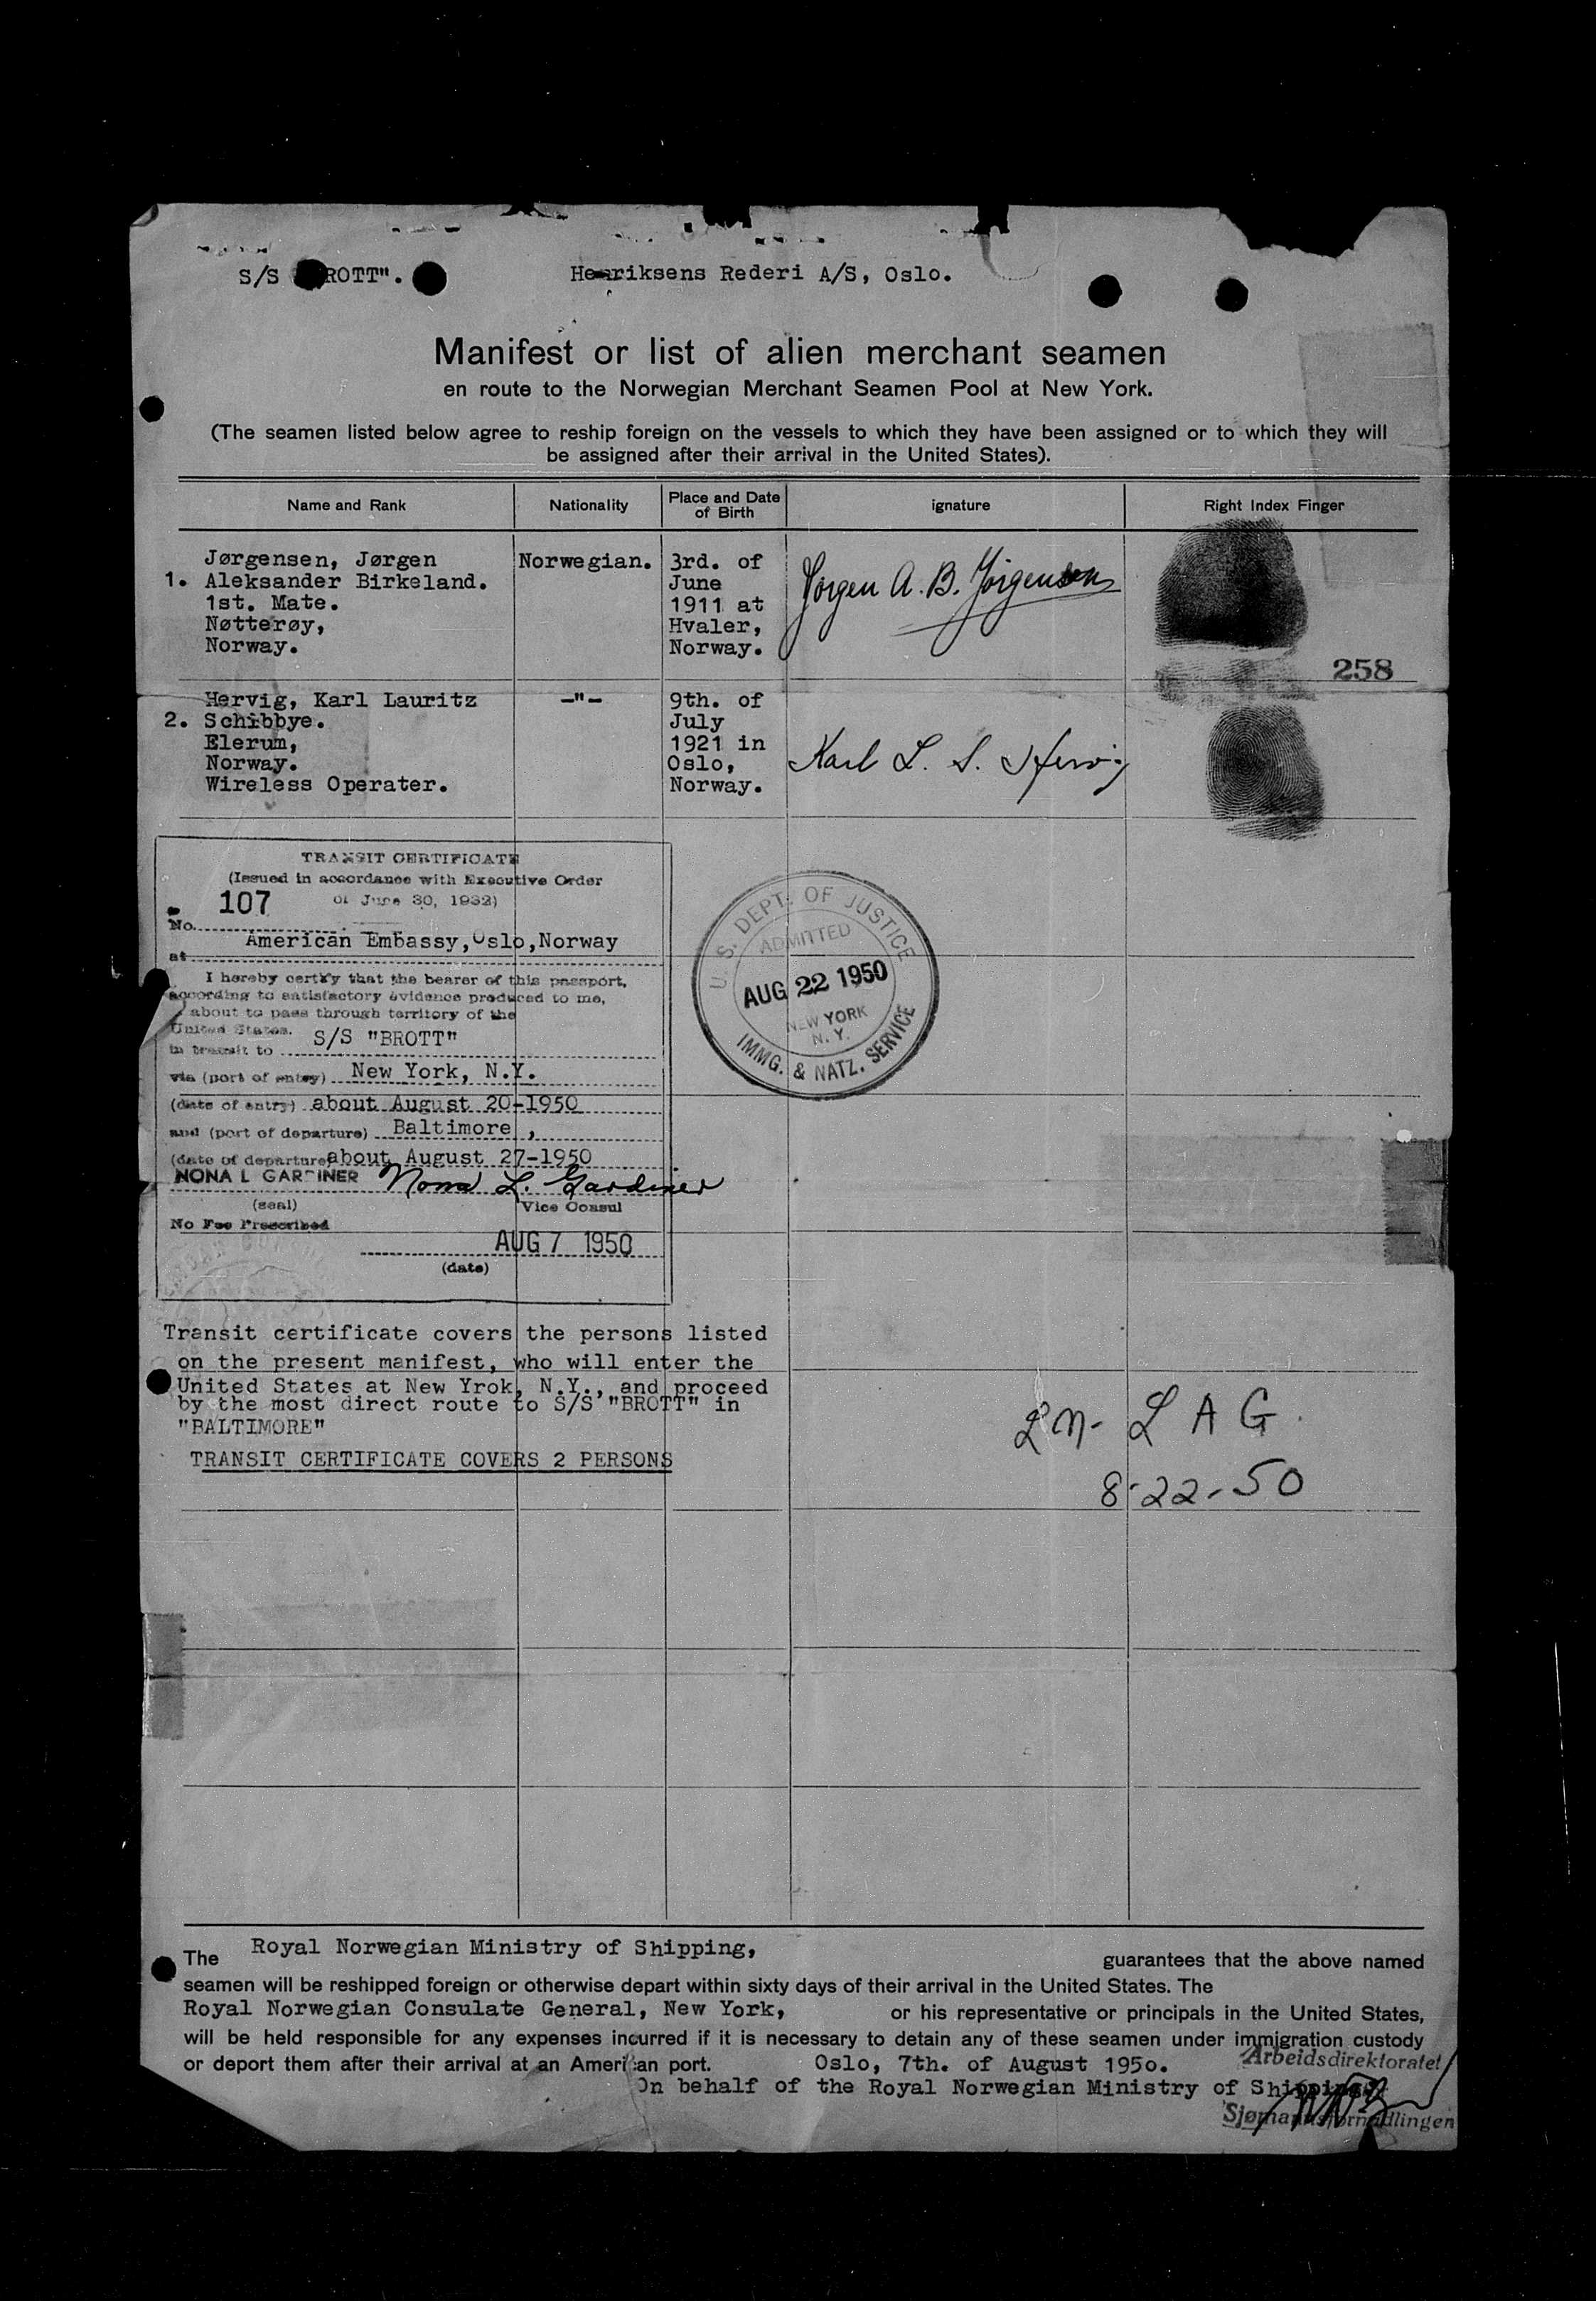 S/S "BROTT".
Henriksens Rederi A/S, Oslo.
Manifest or list of alien merchant seamen
en route to the Norwegian Merchant Seamen Pool at New York.
(The seamen listed below agree to reship foreign on the vessels to which they have been assigned or to which they will
be assigned after their arrival in the United States).
Name and Rank
Nationality
Place and Date
of Birth
ignature
Right Index Finger
Jørgensen, Jørgen
1. Aleksander Birkeland.
1st. Mate.
Nøtterøy,
Norway.
Norwegian.
3rd. of
June
1911 at
Hvaler,
Norway.
Jørgen A. B. Jörgensen
258
Hervig, Karl Lauritz
2. Schibbye.
Elerum,
Norway.
Wireless Operater.
-"-
9th. of
July
1921 in
Oslo,
Norway.
Karl L. S. Hervig
TRANSIT CERTIFICATE
(Issued in accordance with Executive Order
of June 30, 1932)
No. 107
at American Embassy, Oslo, Norway
I hereby certify that the bearer of this passport,
according to satisfactory evidence produced to me,
about to pass through territory of the
United States.
in transit to S/S "BROTT"
via (port of entry) New York, N.Y.
(date of entry) about August 20-1950
and (port of departure) Baltimore ,
(date of departure) about August 27-1950
NONA L GARDINER Nona L. Gardiner
(seal) Vice Consul
No Fee Prescribed
AUG 7 1950
(date)
U. S. DEPT. OF JUSTICE
ADMITTED
AUG 22 1950
NEW YORK
N. Y.
IMMG. & NATZ. SERVICE
Transit certificate covers the persons listed
on the present manifest, who will enter the
United States at New Yrok, N.Y., and proceed
by the most direct route to S/S "BROTT" in
"BALTIMORE"
TRANSIT CERTIFICATE COVERS 2 PERSONS
L A G
8-22-50
The Royal Norwegian Ministry of Shipping, guarantees that the above named
seamen will be reshipped foreign or otherwise depart within sixty days of their arrival in the United States. The
Royal Norwegian Consulate General, New York, or his representative or principals in the United States,
will be held responsible for any expenses incurred if it is necessary to detain any of these seamen under immigration custody
or deport them after their arrival at an American port. Oslo, 7th. of August 1950.
Arbeidsdirektoratet
On behalf of the Royal Norwegian Ministry of Shipping
Sjømannsformidlingen